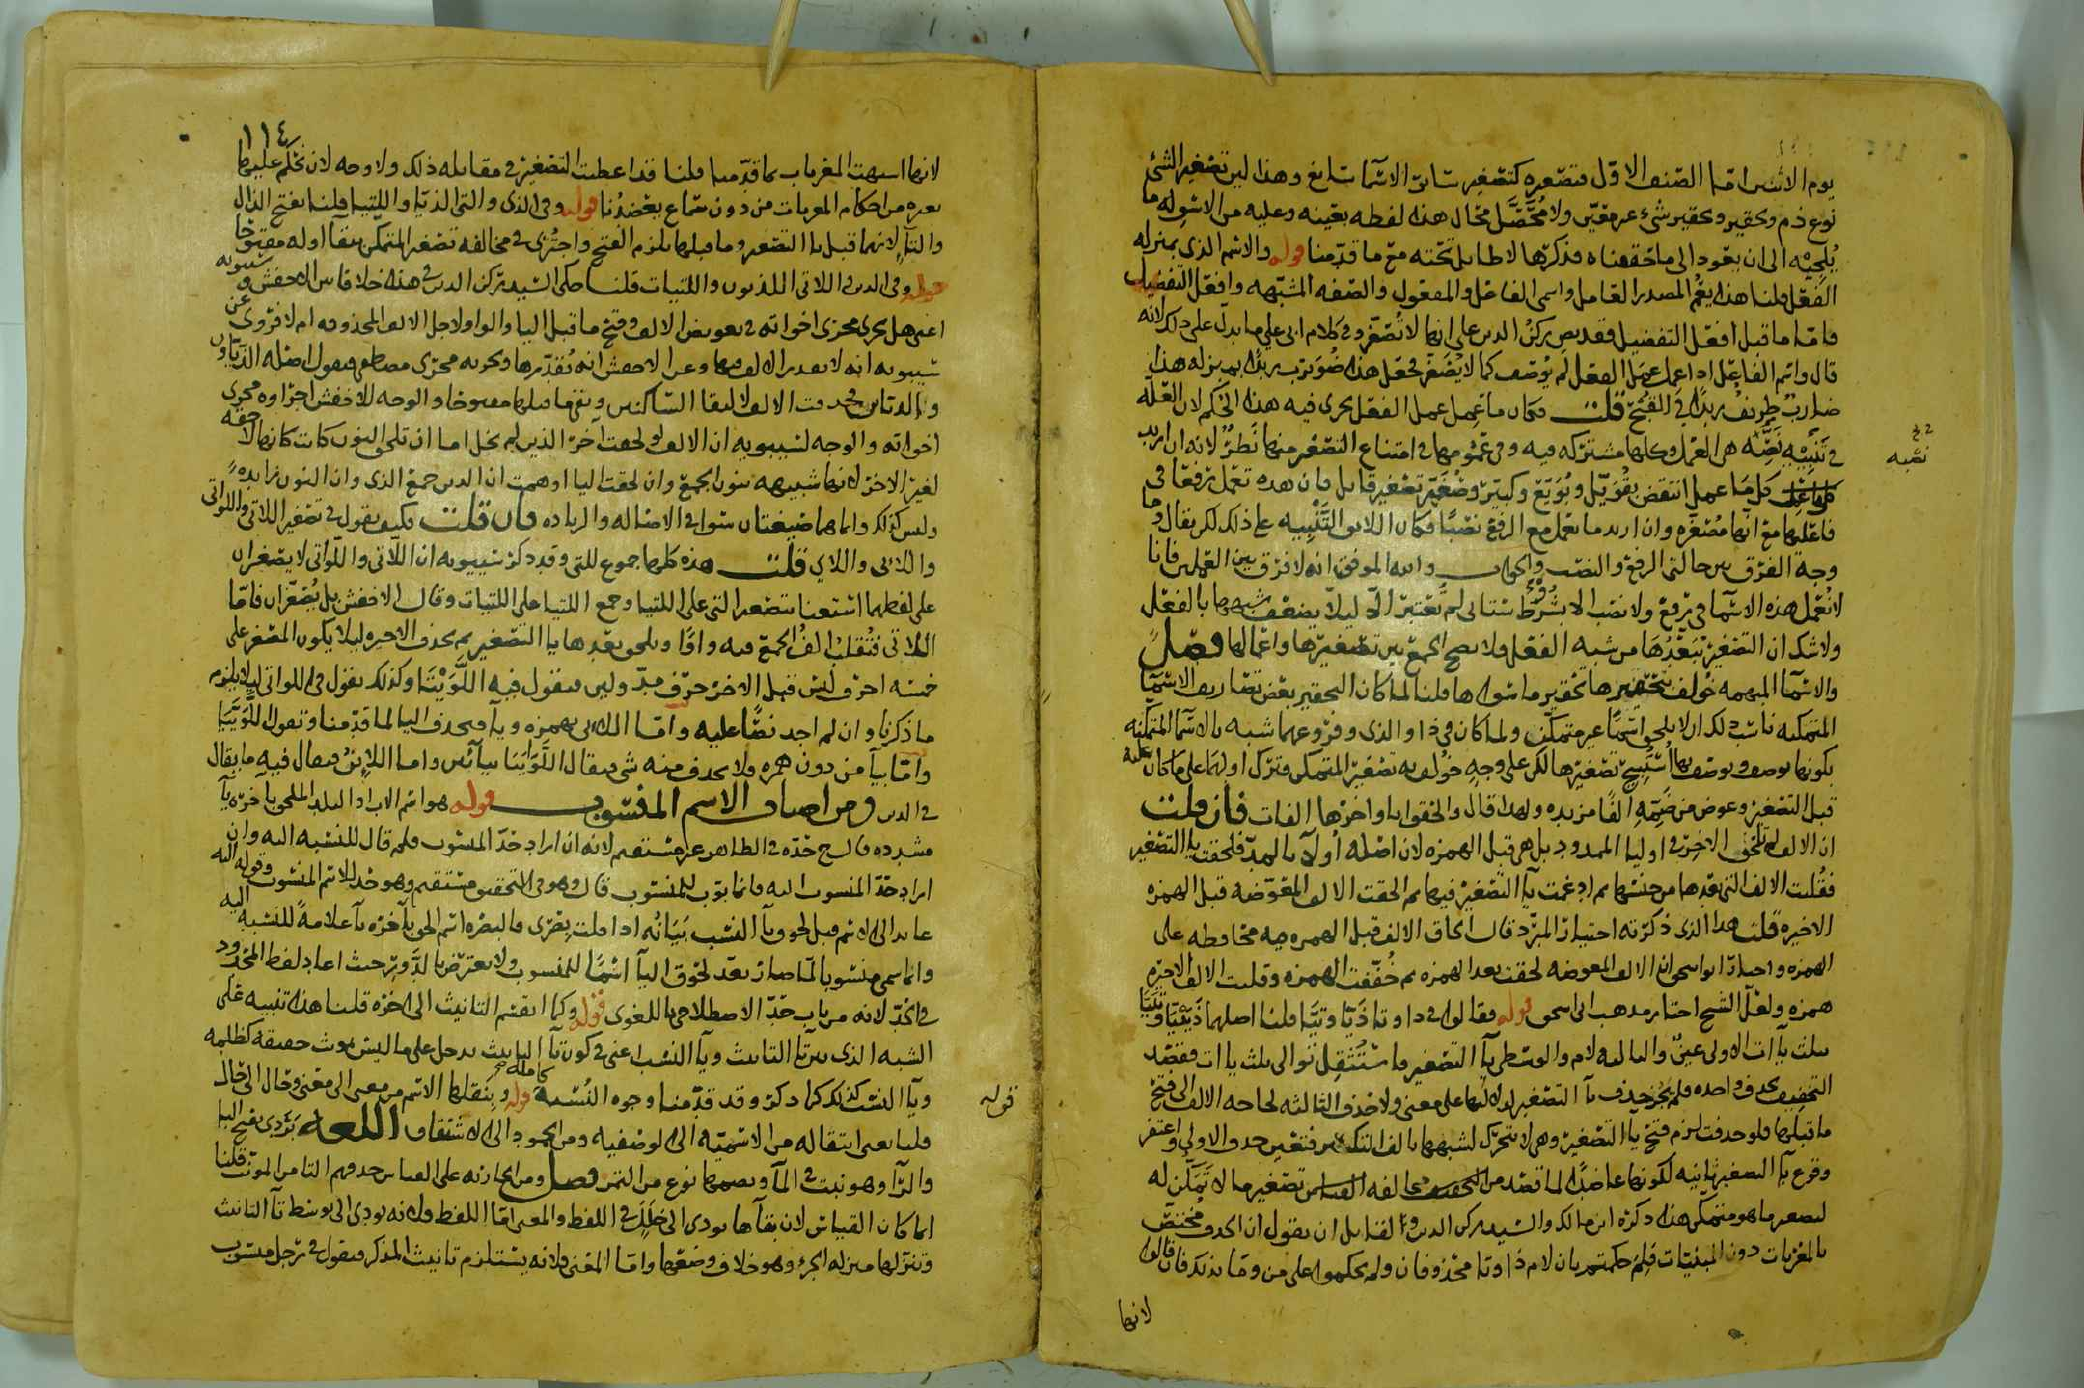 يوم الاثنين اما الصنف الاول فتصغيره كتصغير سائر الاسما سايغ وهذا ليس تصغير الشئ
نوع ذم وتحقير وتحقير شئ غير معيّن ولا مُحَصَّل محال هذا لفظه بعينه وعليه من الاسوله ما
يُلجيه الى ان يعود الى ما حققناه فذكرها لا طايل تحته مع ما قدّمنا قوله والاسم الذي بمنزله
الفعل قلنا هذا يعُمّ المصدر العامل واسمي الفاعل والمفعول والصفه المشبهه وافعل التفضيل
فاما ما قبل افعل التفضيل فقد نص ركن الدين على انها لا تُصغّر وفي كلام ابي علي ما يدل على ذلك لانه
قال واسم الفاعل اذا عمل عمل الفعل لم يُوصف كما لا يُصغر فجعل هذا ضُويرب زيدًا بمنزله هذا
ضاربٌ ظريفٌ زيدًا في القُبح قلت فكان ما عمل عمل الفعل يجري فيه هذا الحكم لان العلّه
في تنبيه نصّه هي العمل وكلها مشتركه فيه وفي عمومها في امتناع التصغير منها نظرٌ لانه ان اريد
كل ما عمل انتقض بقُوَيّل وبُوَيّع وكبير وصُغَيّر تصغير قايل فان هذه تعمل رفعًا في
فاعلها مع انها مُصغّره وان اريد ما يعمل مع الرفع نصبًا فكان اللايق التَّنْبِيه على ذلك لكن يقال وما
وجه الفرق بين حالتي الرفع والنصب والجواب والله الموفق انه لا فرق بين العملين فانا
لا نُعمل هذه الاسما في رفع ولا نصب الا بشُرُوط ستاتي لم تُعتبر الا ليلا يضعف شبهها بالفعل
ولا شك ان التصغير يُبَعّدُهَا من شبه الفعل ولا يصح الجمع بين تصغيرها واعمالها فصل
والاسما المبهمه خولف بتحقيرها تحقير ما سواها قلنا لما كان التحقير بعض تصاريف الاسما
المتمكنه ناسب ذلك ان لا يلحق اسمًا غير متمكن ولما كان في ذا والذي وفروعهما شبه بالاسما المتمكنه
بكونها توصف ويوصف بها اُسْتُبِيح تصغيرها لكن على وجهٍ خُولف به تصغير المتمكن وترك اولها على ما كان عليه
قبل التصغير وعوض من ضمّهِ الفًا مزيده ولهذا قال والحقوا باواخرها الفات فان قلت
ان الالف لم تلحق الاخر في اوليا الممدود بل هي قبل الهمزه لان اصله أُولآ بالمد فلحقت يا التصغير
فقُلبت الالف التي بعدها من جنسها ثم ادغمت يآ التصغير فيها ثم الحقت الالف المعَوّضه قبل الهمزه
الاخيره قلت هذا الذي ذكرته اختيار المبرّد قال الحاق الالف قبل الهمزه فيه محافظه على
الهمزه واختار ابو اسحق ان الالف المعوضه لحقت بعد الهمزه ثم خُفّفت الهمزه وقلبت الالف الاخيره
همزه ولعل الشيخ اختار مذهب ابي اسحق قوله فقالوا في ذا وتا ذَيّا وتيّا قلنا اصلهما ذَيَيّا وتَيَيّا
بثلث يآات الاولى عينٌ والثالثه لام والوسطى يآ التصغير فاستُثقِل توالي ثلث ياات فقصد
التخفيف بحذف واحده فلم يجُز حذف يآ التصغير لدلالتها على معنى ولا حذف الثالثه لحاجه الالف الى فتح
ما قبلها فلو حذفت لزم فتح يا التصغير وهي لا تتحرك لشبهها بالف التكسير فتعين حذف الاولى واغتفر
وقوع يآ التصغير ثانيه لكونها عاضدًا لما قصد من مخالفه القياس تصغير ما لا تمكّن له
لتصغير ما هو متمكن هذا ذكره ابن مالك والسيد ركن الدين ولقايل ان يقول ان الحذف مُختصّ
بالمعربات دون المبنيّات فَلِمَ حكمتم بان لام ذا وتا محذوفان ولم تحكموا على من وما بذلك فان قالوا
لانها
نصّه
١١٤
لانها اشبهت المعربات بما قدّمنا قلنا قد اعطيت التصغير في مقابله ذلك ولا وجه لان نحكم عليها
بغيره من احكام المعربات من دون سماع يعضدُنا قوله وفي الذي والتي الذَيّا واللتيا قلنا بفتح الذال
والتآ لانهما قبل يا التصغير وما قبلها يلزم الفتح واجتُزي في مخالفه تصغير المتمكن ببقآ اوله مفتوحًا
قوله وفي الذين واللاتي اللذيون واللتيات قلنا حكى السيد ركن الدين في هذه خلافا بين الاخفش وسيبويه
اعني هل يجري مجرى اخواته في تعويض الالف وفتح ما قبل اليا والواو لاجل الالف المحذوفه ام لا فروى عن
سيبويه انه لا يقدر الالف فيها وعن الاخفش انه يُقدّرها ويجريه مجرى مصطفى فيقول اصله الذيّاون
والذيّاين فحذفت الالف لالتقا الساكنين وبقي ما قبلها مفتوحا والوجه للاخفش اجراوه مجرى
اخواته والوجه لسيبويه ان الالف لو لحقت اخر الذين لم يخل اما ان تلي النون كانت كانها لاحقه
لغير الاخر لانها شبيهه بنون الجمع وان لحقت اليا اوهمت ان الذين جمع الذي وان النون زايدهٌ
وليس كذلك وانما هما صيغتان سوا في الاصاله والزياده فان قلت فكيف يقول في تصغير اللاتي واللواتي
واللائي واللاي قلت هذه كلها جموع للتي وقد ذكر سيبويه ان اللآتي واللواتي لا يصغران
على لفظهما استغنا بتصغير التي على اللتيا وجمع اللتيا على اللتيات وقال الاخفش بل يُصغّران فامّا
اللاتي فتُقلبُ الفُ الجمع فيه واوًا ويلحق بعدها يا التصغير ثم يحذف الاخيره ليلا يكون المصغر على
خمسه احرف ليس قبل الاخر حرف مدّ ولين فيقول فيه اللَّوَيْتَا وكذلك نقول في اللواتي ليلا يلزم
ما ذكرنا وان لم اجد نصًّا عليه وامّا اللائي بهمزه ويآ فيحذف اليا لما قدّمنا وتقول اللَّوَيَّا
وامّا بيآ من دون همزه ولا يحذف منه شي فيقال اللَّوَايَّنا بيآئين واما اللائنُ فيقال فيه ما يقال
في الذين ومن اصناف الاسم المنسوب قوله هو اسم الاب او البلد الملحق باخره يآ
مشدده قال ح حدّه في الظاهر غير مستقيم لانه ان اراد حدّ المنسوب فلم قال للنسبه اليه وان
اراد حدّ المنسوب اليه فانما بوّب للمنسوب قال وهو في التحقيق مستقيم وهو حدٌ للاسم المنسوب وقوله اليه
عايد الى الاسم قبل لحوق يآ النسب بَيَانُه اذا قلت بِصْرى فالبصره اسم الحق بآخره يآ علامةً للنسبه اليه
وانما سمي منسوبا لما صار بعد لحوق اليآ اسمًا للمنسوب ولا يعترض بالدَّوْر حيث اعاد لفظ المحدود
في الحدّ لانه من باب حدّ الاصطلاحي باللغوي قوله وكما انقسم التانيث الى اخره قلنا هذا تنبيه على
الشبه الذي بين تآ التانيث ويآ النسب اعني في كون تآ التانيث تدخل على ما ليس بمونث حقيقه كظلمه
ويآ النسب كذلك كما ذكر وقد قدّمنا وجوه النُسبه كامله صح قوله وينقلها الاسم من معنى الى معنى وحال الى حال
قوله
قلنا يعني انتقاله من الاسميّه الى الوصفيه ومن الجمود الى الاشتقاق اللغه بَرْدي بفتح البا
والرآ وهو نبت في المآ وبضمها نوع من التمر فصل ومن الجاريه على القياس حذفهم التا من المونّث قلنا
انما كان القياس لان بقآها يودي الى خَلَلٍ في اللفظ والمعنى امّا اللفظ فلانه يودي الى توسط تآ التانيث
وتنزلها منزله الجزء وهو خلاف وضعها وامّا المعنى فلانه يستلزم تانيث المذكر فيقول في رجل منسوب